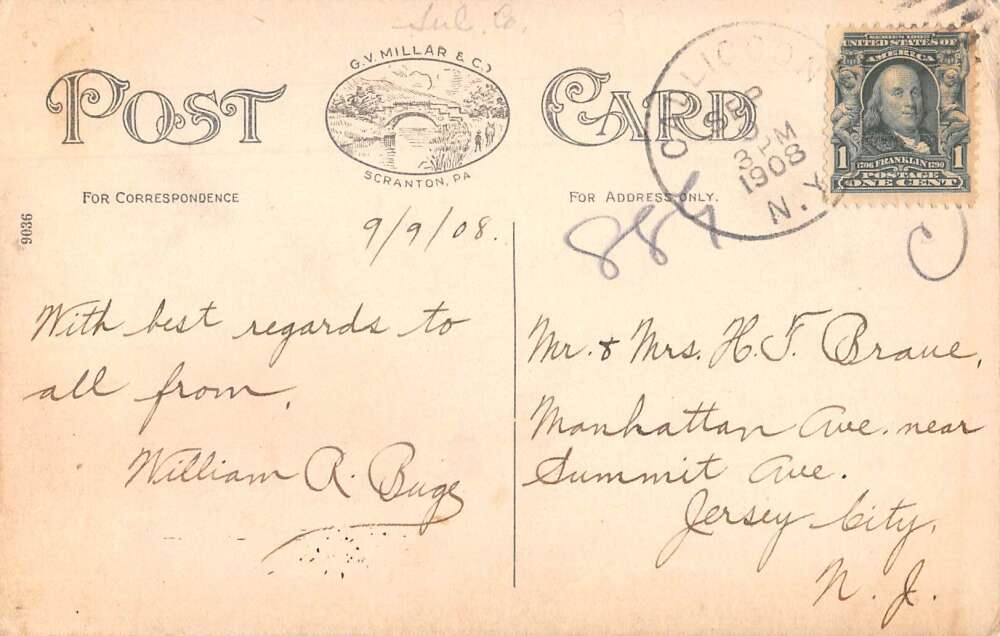 Sul. Co.
G.V. MILLAR & CO
POST CARD
SCRANTON, PA
FOR CORRESPONDENCE
FOR ADDRESS ONLY.
CALLICOON
SEP
3 PM
1908
N.Y.
SERIES 1902
UNITED STATES OF
AMERICA
1 1706 FRANKLIN 1790 1
POSTAGE
ONE CENT
9036
9/9/08.
887
With best regards to
all from,
William R. Buge
Mr. & Mrs. H. F. Braue,
Manhattan Ave. near
Summit Ave.
Jersey City,
N. J.